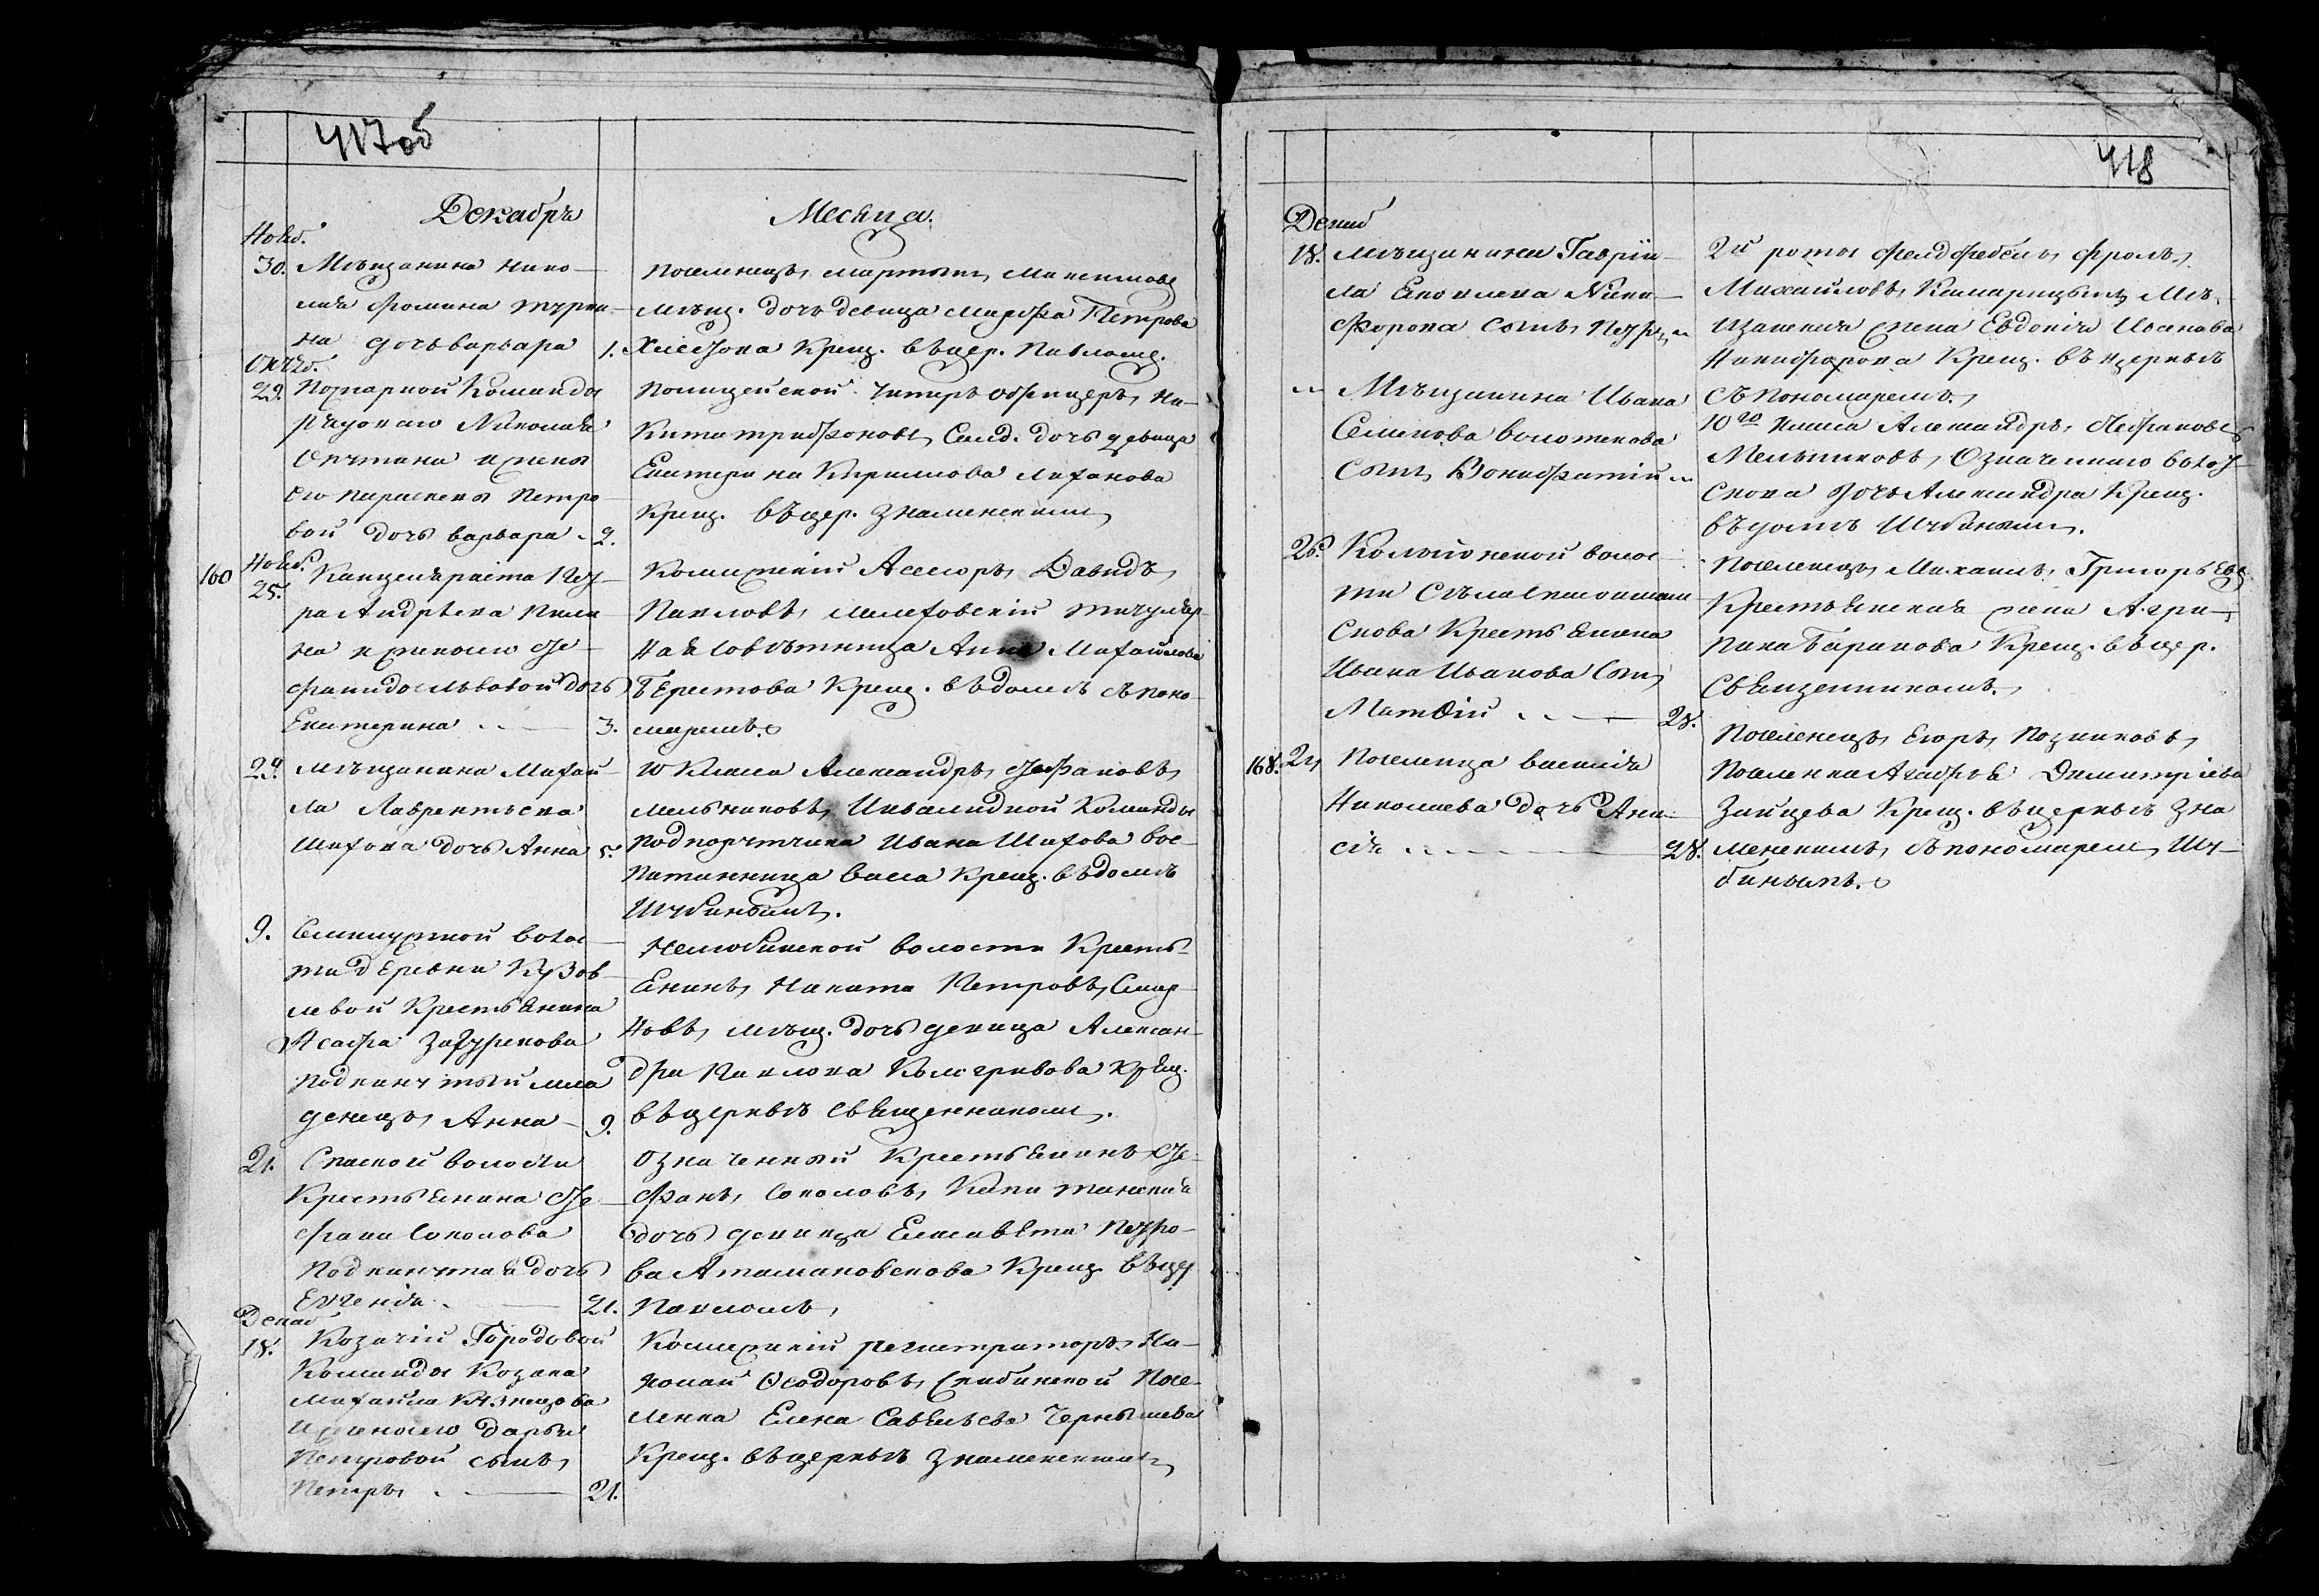 417 об
Декабрь Месяца.
Нояб.
30. Мѣщанина Нико-
лая Фомина
на дочь варвара 1.
поселенецъ мартынъ
мѣщ. дочь девица марфа Петрова
Крещ. въ цер. Павломъ.
Октяб.
29. Пожарной Команды
рядоваго Николая
и жены
его параскевы Петро-
вой дочь варвара 2.
Полицейской унтеръ офицеръ Ни-
кита трифоновъ Салд. дочь девица
Екатерина Кирилова
Крещ. въ цер. Знаменскимъ
160
Нояб.
25. Канцеляриста Пет-
ра Андрѣева
на и жены его Сте-
дочь
Екатерина 3.
Колежскій Асесоръ Давидъ
Павловъ титуляр-
ная совѣтница Анна Михайлова
Берестова Крещ. въ домѣ съ поно-
маремъ.
29. мѣщанина Михаи-
ла Лаврентьева
Шихова дочь Анна 5.
10 Класа Александръ Стефановъ
мельниковъ, Инвалидной Команды
подпорутчика Ивана Шихова вос-
питанница васса Крещ. въ домѣ
Шубинымъ.
9. волос-
ти деревни
левой Крестьянина
Асафа
подкинутый мла
денецъ Анна 9.
волости Кресть-
янинъ Никита Петровъ
новъ, мѣщ. дочь девица Алексан-
дра Павлова Крещ.
въ церквѣ священникомъ.
21. Спаской волости
Крестьянина Сте-
фана Соколова
Подкинутая дочь
Евгенія 21.
Означенный Крестьянинъ Сте-
фанъ Соколовъ, Капитанская
дочь девица Елисавета Петро-
ва Атамановскова Крещ. въ цер
Павломъ
Декаб
18. Козачій Городовой
Команды Козака
михайла Кузнецова
и жены его Дарьи
Петровой сынъ
Петръ 21.
Колежскій регистраторъ Ни-
колай Ѳеодоровъ Скибинской Посе-
ленка Елена Савельева Чернышева
Крещ. въ церквѣ Знаменскимъ
418
Декаб
18. мѣщанина Гаврiи-
ла Яковлева Ники-
форова сынъ Петръ
2й роты Фелдфебель Фролъ
Михайловъ, Мѣ-
щанская жена Евдокія Иванова
Никифорова Крещ. въ церквѣ
съ Пономаремъ.
Мѣщанина Ивана
Семенова волотенкова
сынъ Вонифатій
10го класа Александръ Стефановъ
Мельниковъ, Означеннаго волот-
скова дочь Александра Крещ.
въ домѣ Шубинымъ.
26. волос-
ти
скова Крестьянина
Ивана Иванова сынъ
Матѳій 28.
Поселенецъ Михаилъ Григорьевъ
Крестьянская жена Агри-
пина Баранова Крещ. въ цер.
Священникомъ.
168. 24 Поселенца василія
Николаева дочь Ани-
сія 28.
Поселенецъ Егоръ Позняковъ,
Поселенка Агафья Димитріева
Зайцева Крещ. въ церквѣ Зна
менскимъ, съ пономаремъ Шу-
бинымъ.